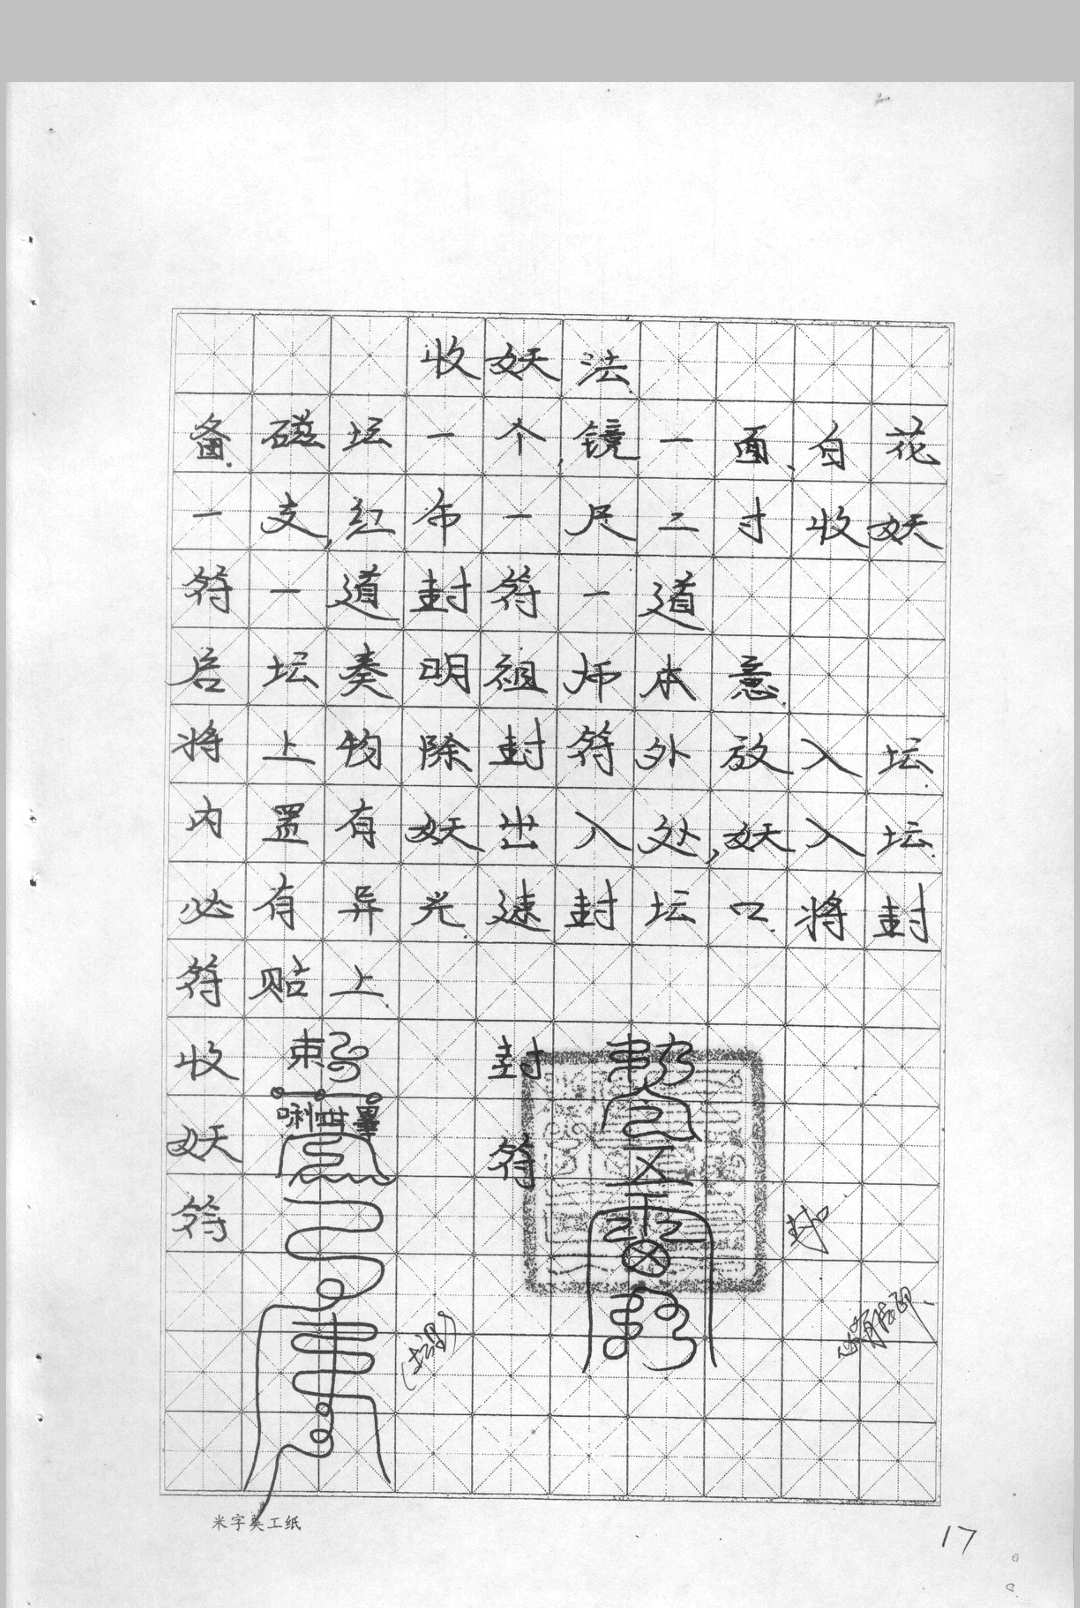 收妖法
备磁坛一个,镜一面、白花
一支,红布一尺二寸收妖
符一道封符一道
启坛奏明祖师本意
将上物除封符外放入坛.
内置有妖出入处,妖入坛.
必有异光.速封坛口.将封
符贴上.
收妖符
封符
封口
米字美工纸
17